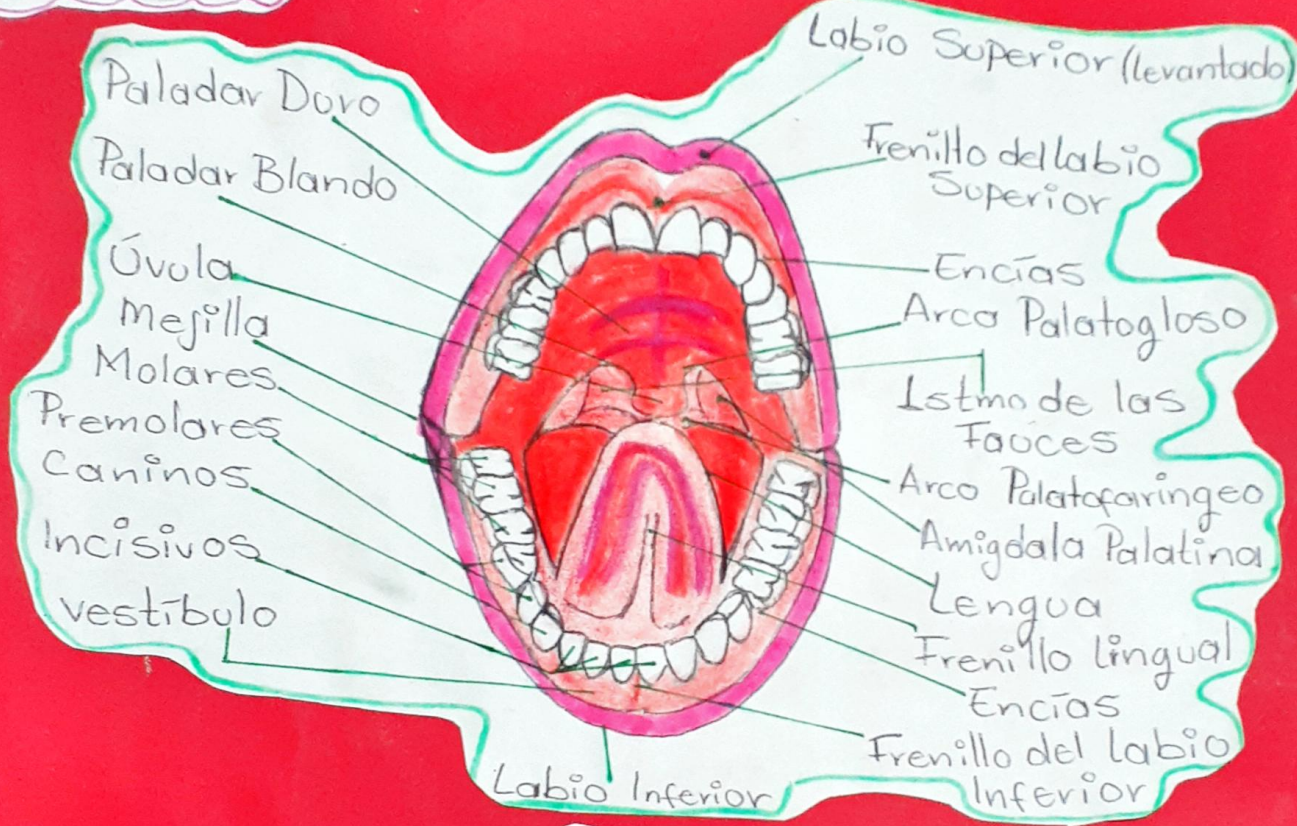 Paladar Duro
Paladar Blando
Úvula
Mejilla
Molares
Premolares
Caninos
Incisivos
vestíbulo
Labio Inferior
Labio Superior (levantado)
Frenillo del labio
Superior
Encías
Arco Palatogloso
Istmo de las
Fauces
Arco Palatofaríngeo
Amigdala Palatina
Lengua
Frenillo lingual
Encías
Frenillo del labio
Inferior